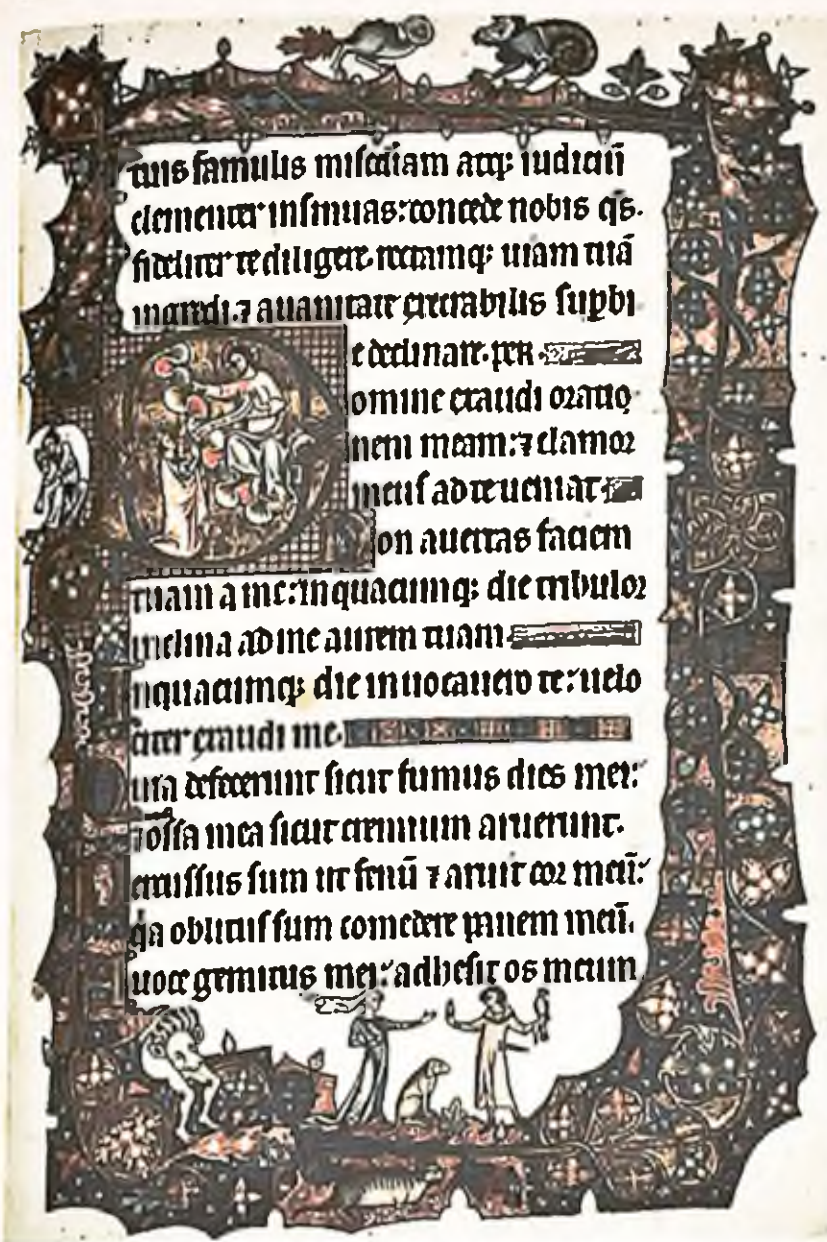 tuis famulis misc̄diam atq; iudiciū
clementer insinuas: concede nobis q̄s.
fideliter te diligere. rectamq; uiam tuā
ingredi. ⁊ a uanitate execrabilis sup̱bi
e declinare. per.
omine exaudi oratio
nem meam: ⁊ clamor
meus ad te ueniat
on auertas faciem
tuam a me: in quacumq; die tribulor
inclina ad me aurem tuam
n quacumq; die inuocauero te: uelo
citer exaudi me.
uia defecerunt sicut fumus dies mei:
⁊ ossa mea sicut cremium aruerunt.
ercussus sum ut fenū ⁊ aruit cor meū:
q̇a oblitus sum comedere panem meū.
uoce gemitus mei: adhesit os meum